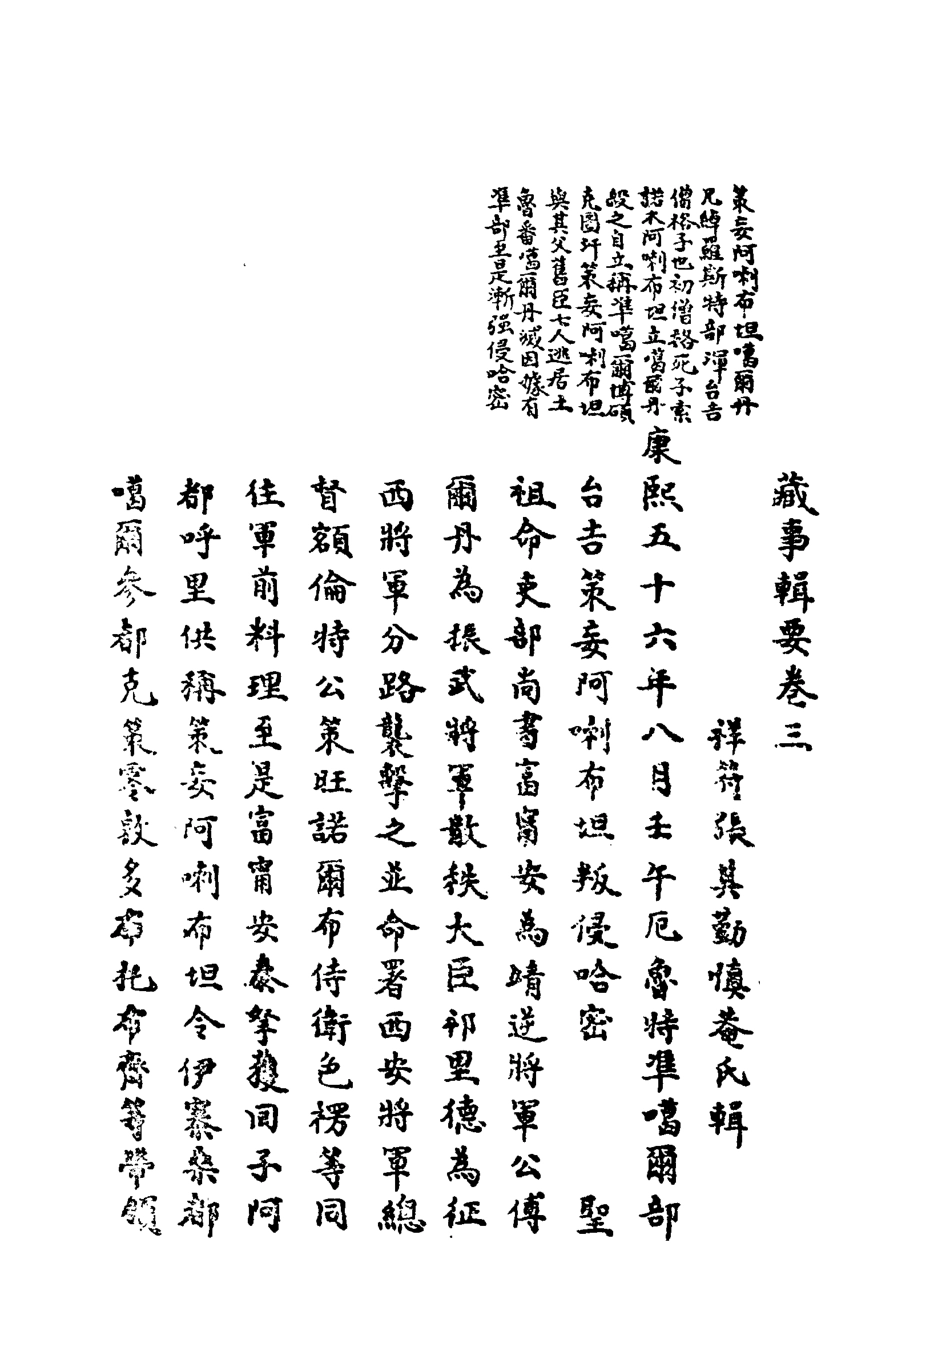 藏事輯要卷三
祥符張其勤慎菴氏輯
康熙五十六年八月壬午厄魯特準噶爾部
台吉策妄阿喇布坦叛侵哈密　聖
祖命吏部尚書富甯安為靖逆將軍公傅
爾丹為振武將軍散秩大臣祁里德為征
西將軍分路襲擊之並命署西安將軍總
督額倫特公策旺諾爾布侍衛色楞等同
往軍前料理至是富甯安奏拏獲回子阿
都呼里供稱策妄阿喇布坦令伊寨桑都
噶爾參都克策零敦多布托布齊等帶領
策妄阿喇布坦噶爾丹
兄綽羅斯特部渾台吉
僧格子也初僧格死子索
諾木阿喇布坦立噶爾丹
殺之自立稱準噶爾博碩
克圖汗策妄阿喇布坦
與其父舊臣七人逃居土
魯番噶爾丹滅因據有
準部至是漸强侵哈密